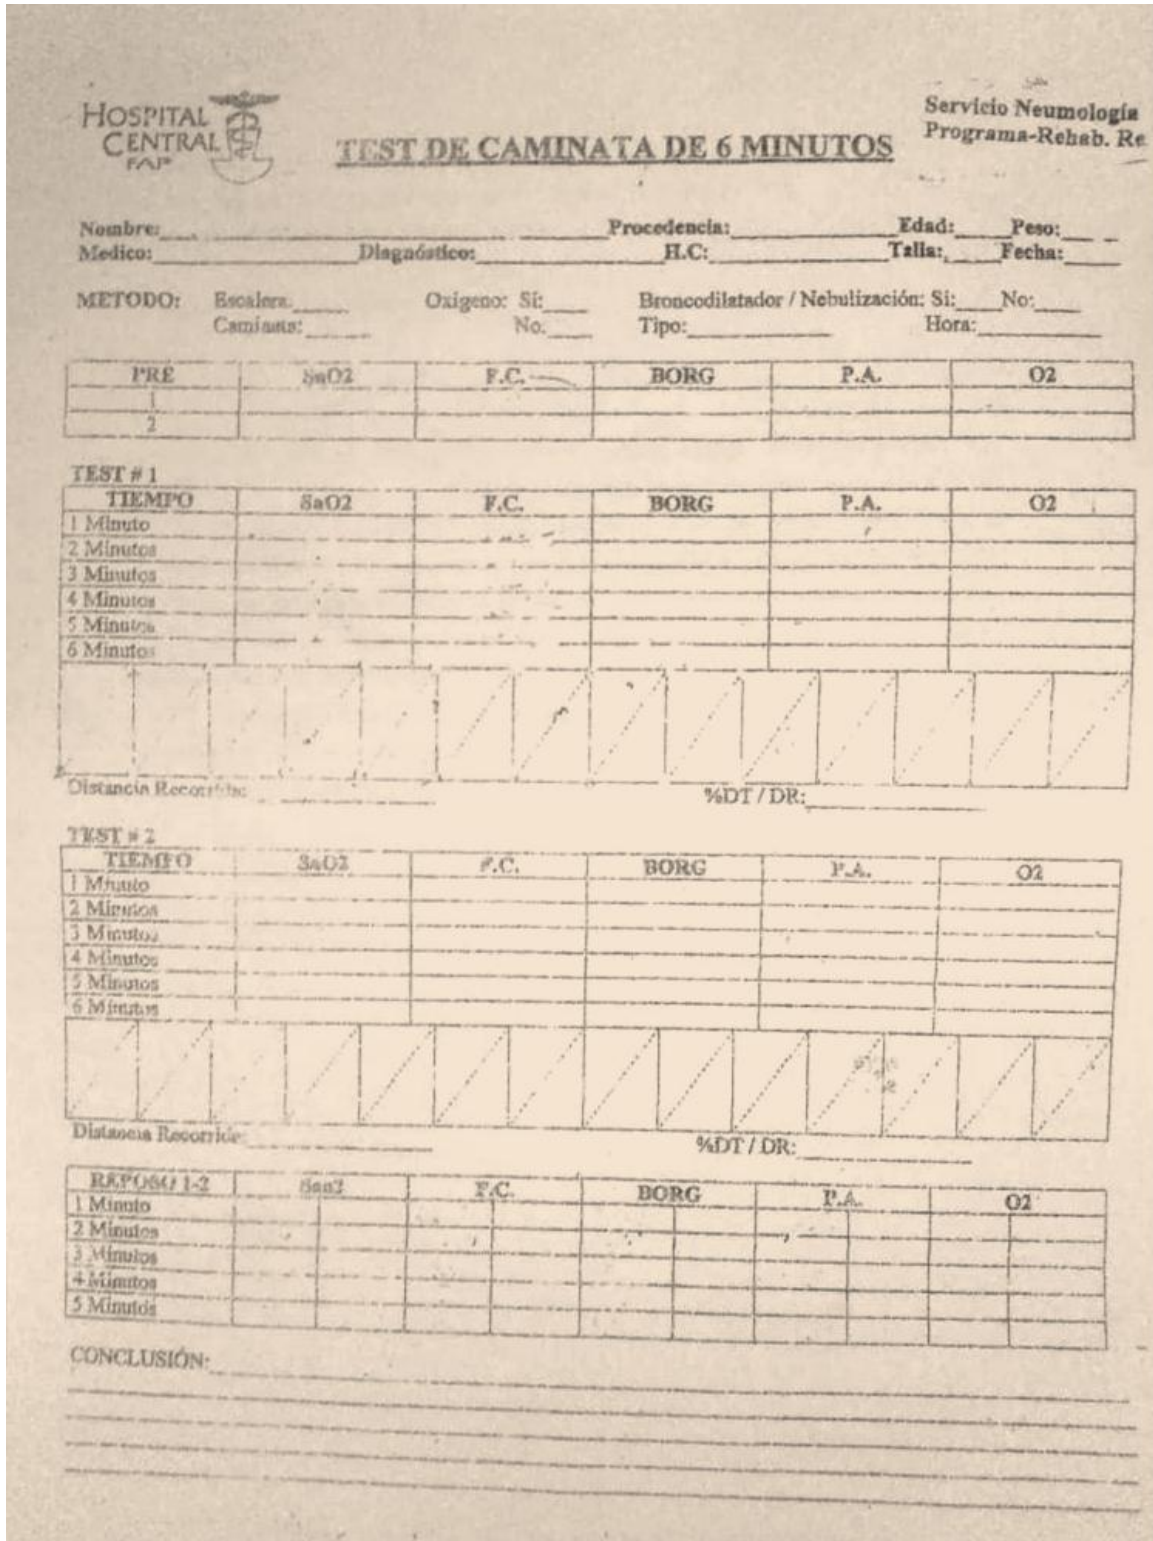 HOSPITAL
CENTRAL
FAP
Servicio Neumología
Programa-Rehab. Re
TEST DE CAMINATA DE 6 MINUTOS
Nombre: Procedencia: Edad: Peso:
Medico: Diagnóstico: H.C: Talla: Fecha:
METODO: Escalera: Oxigeno: Si: Broncodilatador / Nebulización: Si: No:
Caminata: No: Tipo: Hora:
PRE SaO2 F.C. BORG P.A. O2
1
2
TEST # 1
TIEMPO SaO2 F.C. BORG P.A. O2
1 Minuto
2 Minutos
3 Minutos
4 Minutos
5 Minutos
6 Minutos
Distancia Recorrida: %DT / DR:
TEST # 2
TIEMPO SaO2 F.C. BORG P.A. O2
1 Minuto
2 Minutos
3 Minutos
4 Minutos
5 Minutos
6 Minutos
Distancia Recorrida: %DT / DR:
REPOSO 1-2 SaO2 F.C. BORG P.A. O2
1 Minuto
2 Minutos
3 Minutos
4 Minutos
5 Minutos
CONCLUSIÓN: